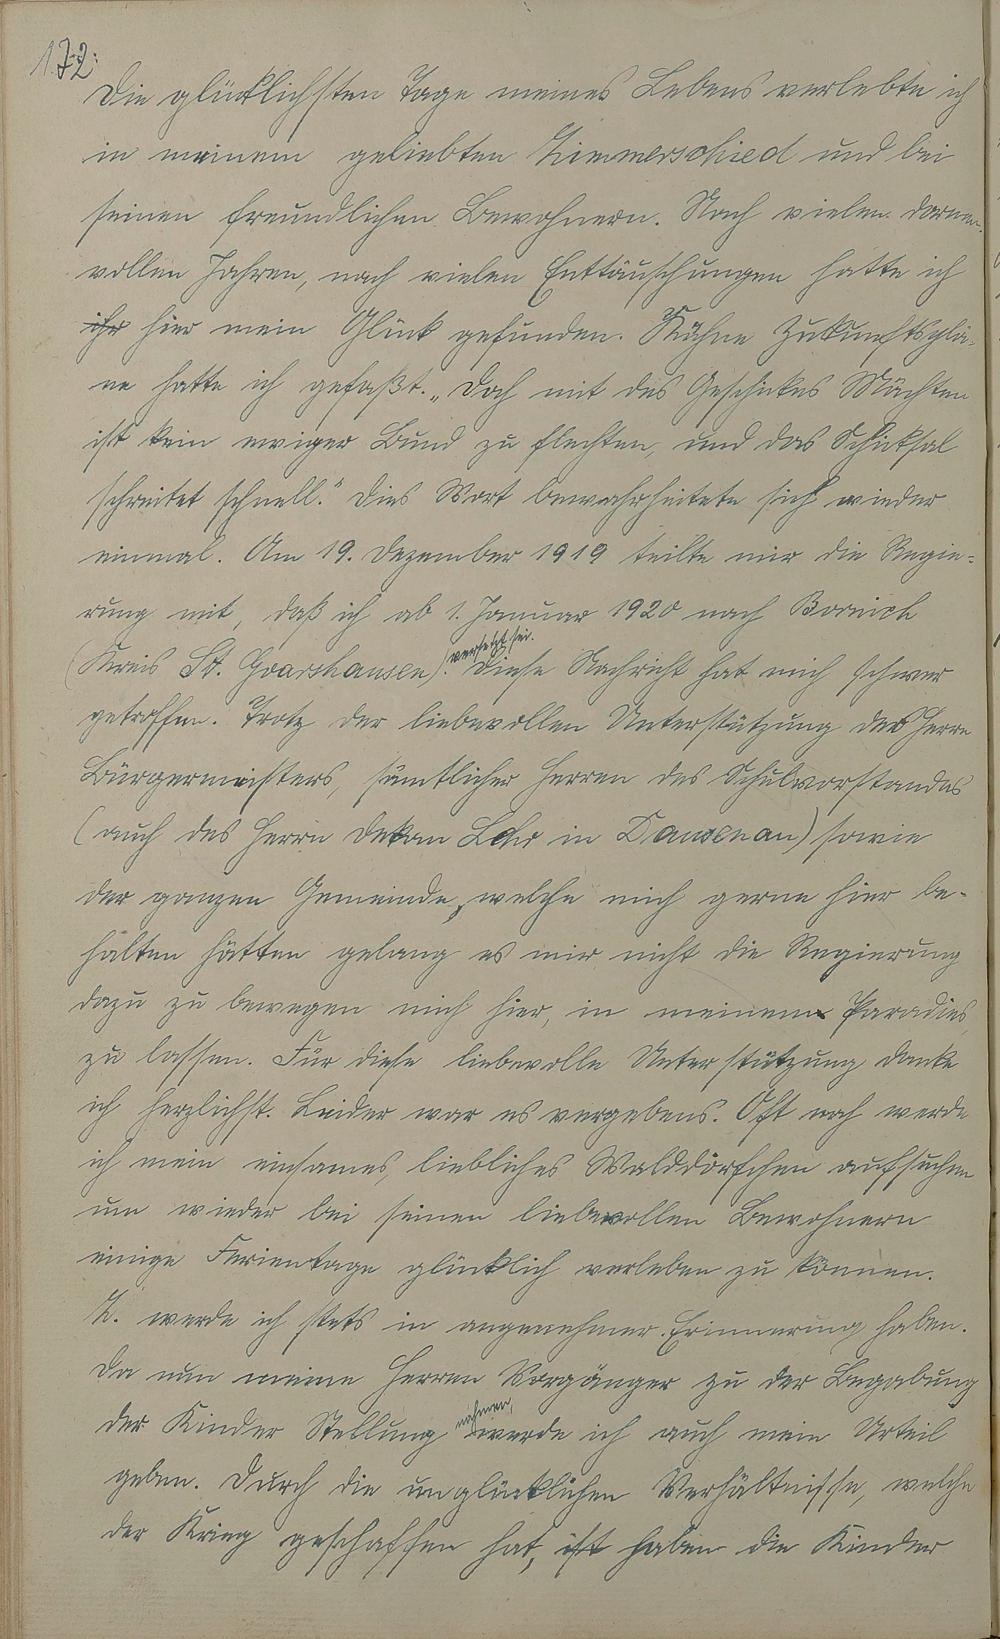 172.
Die glücklichsten Tage meines Lebens verlebte ich
in meinem geliebten Zimmerschied und bei
seinen freundlichen Bewohnern. Nach vielen dornen-
vollen Jahren, nach vielen Enttäuschungen hatte ich
ihr hier mein Glück gefunden. Kühne Zukunftsplä-
ne hatte ich gefaßt. „Doch mit des Geschickes Mächten
ist kein ewiger Bund zu flechten, und das Schicksal
schreitet schnell." Dies Wort bewahrheitete sich wieder
einmal. Am 19. Dezember 1919 teilte mir die Regie-
rung mit, daß ich ab 1. Januar 1920 nach Bornich
(Kreis St. Goarshausen) versetzt sei. Diese Nachricht hat mich schwer
getroffen. Trotz der liebevollen Unterstützung des Herrn
Bürgermeisters, sämtlicher Herren des Schulvorstandes
(auch des Herrn Dekan Lehr in Dausenau) sowie
der ganzen Gemeinde, welche mich gerne hier be-
halten hätten gelang es mir nicht die Regierung
dazu zu bewegen mich hier, in meinem Paradies
zu lassen. Für diese liebevolle Unterstützung danke
ich herzlichst. Leider war es vergebens. Oft noch werde
ich mein einsames, liebliches Walddörfchen aufsuchen
um wieder bei seinen liebevollen Bewohnern
einige Ferientage glücklich verleben zu können.
Z. werde ich stets in angenehmer Erinnerung haben.
Da nun meine Herren Vorgänger zu der Begabung
der Kinder Stellung nahmen, werde ich auch mein Urteil
geben. Durch die unglücklichen Verhältnisse, welche
der Krieg geschaffen hat, ist haben die Kinder